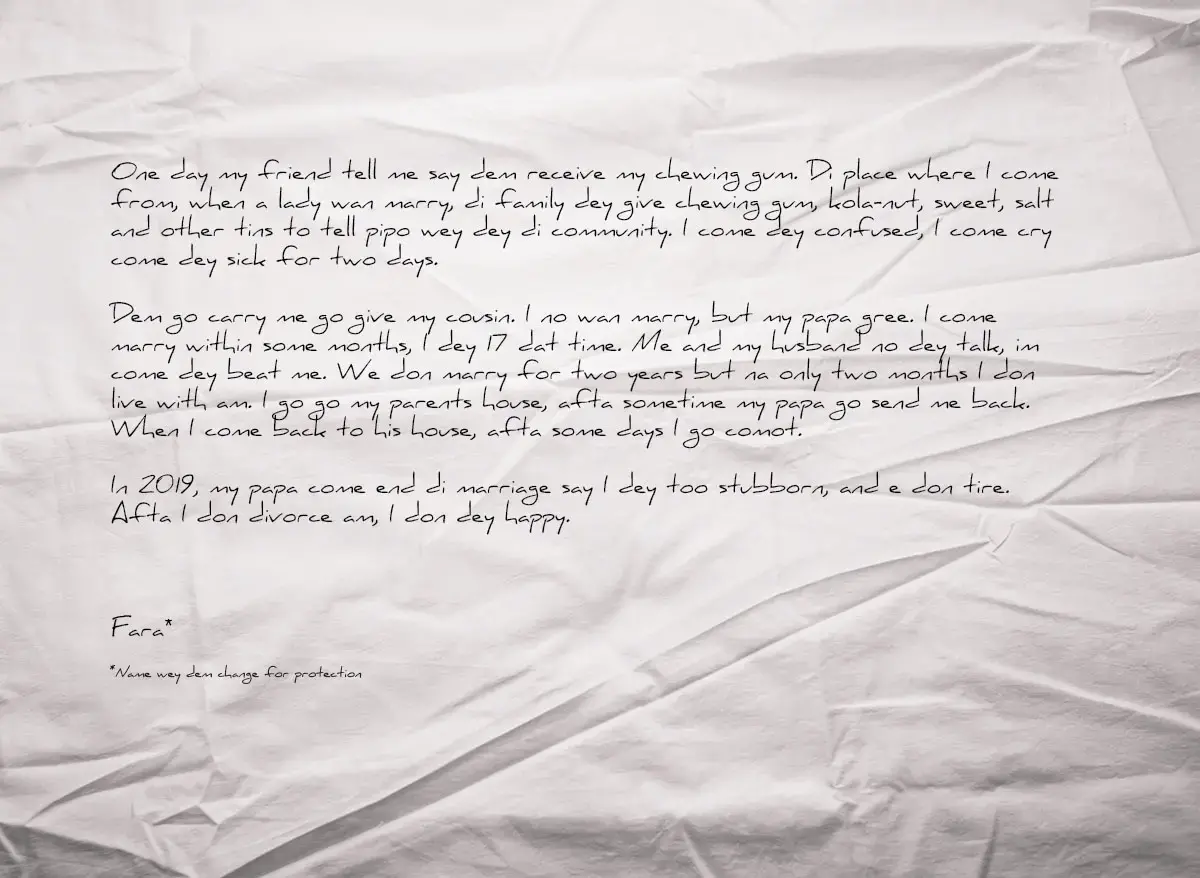 One day my friend tell me say dem receive my chewing gum. Di place where I come
from, when a lady wan marry, di family dey give chewing gum, kola-nut, sweet, salt
and other tins to tell pipo wey dey di community. I come dey confused, I come cry
come dey sick for two days.
Dem go carry me go give my cousin. I no wan marry, but my papa gree. I come
marry within some months, I dey 17 dat time. Me and my husband no dey talk, im
come dey beat me. We don marry for two years but na only two months I don
live with am. I go go my parents house, afta sometime my papa go send me back.
When I come back to his house, afta some days I go comot.
In 2019, my papa come end di marriage say I dey too stubborn, and e don tire.
Afta I don divorce am, I don dey happy.
Fara*
*Name wey dem change for protection